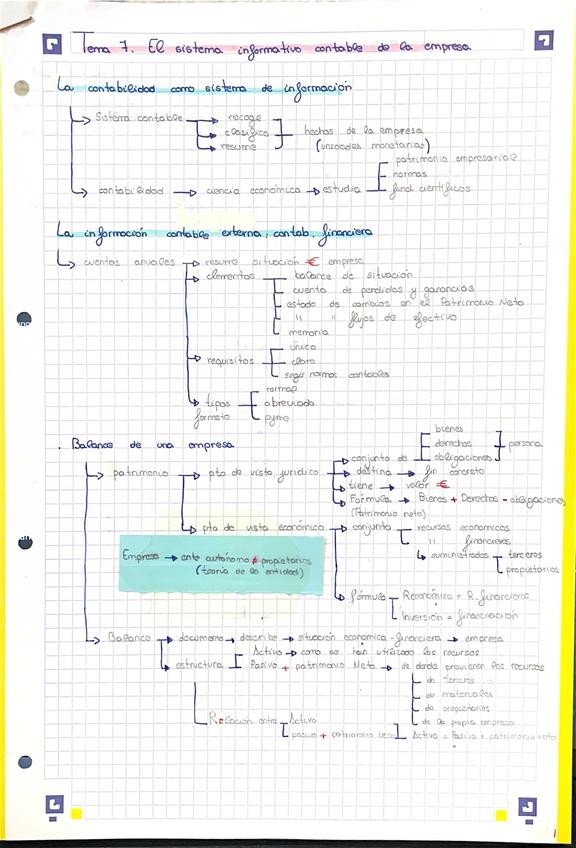 Tema 7. El sistema informativo contable de la empresa
La contabilidad como sistema de información
Sistema contable → recoge
clasifica
resume
hechos de la empresa
(unidades monetarias)
contabilidad → ciencia económica → estudia
patrimonio empresarial
normas
fund. científicos
La información contable externa: contab. financiera
cuentas anuales → resume situación € empresa
elementos
balance de situación
cuenta de perdidas y ganancias
estado de cambios en el Patrimonio Neto
" " flujos de efectivo
memoria
requisitos
único
claro
seguir normas contables
tipos
formato
normal
abreviado
pyme
. Balance de una empresa
patrimonio → pto de vista jurídico → conjunto de
bienes
derechos
obligaciones
persona
destina → fin concreto
tiene → valor €
Fórmula → Bienes + Derechos - obligaciones
(Patrimonio neto)
pto de vista económico → conjunto
recursos economicos
" financieros
suministrados
terceros
propietarios
Empresa → ente autónomo ≠ propietarios
(teoría de la entidad)
fórmula
R.económico = R.financieros
Inversión = financiación
Balance → documento → describe → situación económica-financiera → empresa
estructura
Activo → como se han utilizado los recursos
Pasivo + patrimonio Neto → de donde provienen los recursos
de terceros
de materiales
de propietarios
de la propia empresa
Relación entre
Activo
pasivo + patrimonio neto
Activo = Pasivo + patrimonio Neto